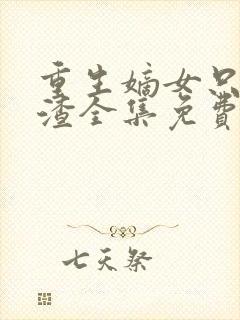 重生嫡女只
渣全集免费
七天祭